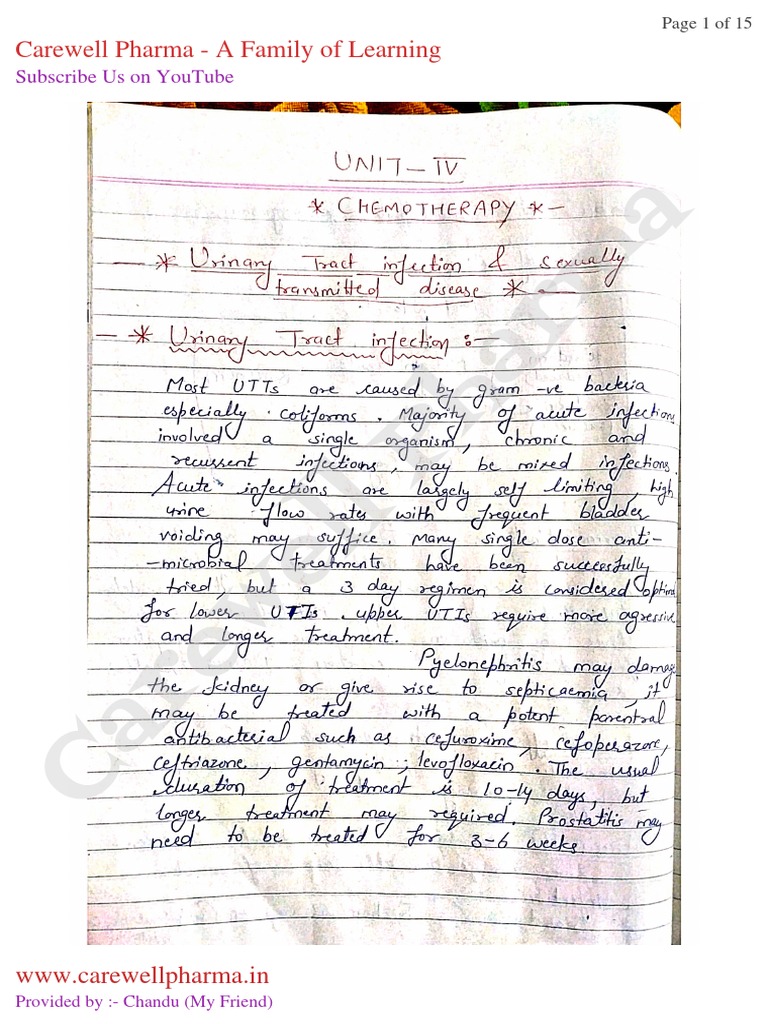 Page 1 of 15
Carewell Pharma - A Family of Learning
Subscribe Us on YouTube
UNIT-IV
* CHEMOTHERAPY *-
-* Urinary Tract infection & sexually
transmitted disease *-
-* Urinary Tract infection :-
Most UTTs are caused by gram -ve bacteria
especially coliforms. Majority of acute infections
involved a single organism, chronic and
recussent infections, may be mixed infections.
Acute infections are largely self limiting, high
urine flow rates with frequent bladder
voiding may suffice. Many single dose anti-
-microbial treatments have been successfully
tried, but a 3 day regimen is considered optimal
for lower UTIs. upper UTIs require more agressive
and longer treatment.
Pyelonephritis may damage
the kidney or give rise to septicaemia, it
may be treated with a potent parentral
antibacterial such as cefuroxime, cefoperazone,
ceftriazone, gentamycin, levofloxacin. The usual
duration of treatment is 10-14 days, but
longer treatment may required. Prostatitis may
need to be treated for 3-6 weeks
Carewell Pharma
www.carewellpharma.in
Provided by :- Chandu (My Friend)